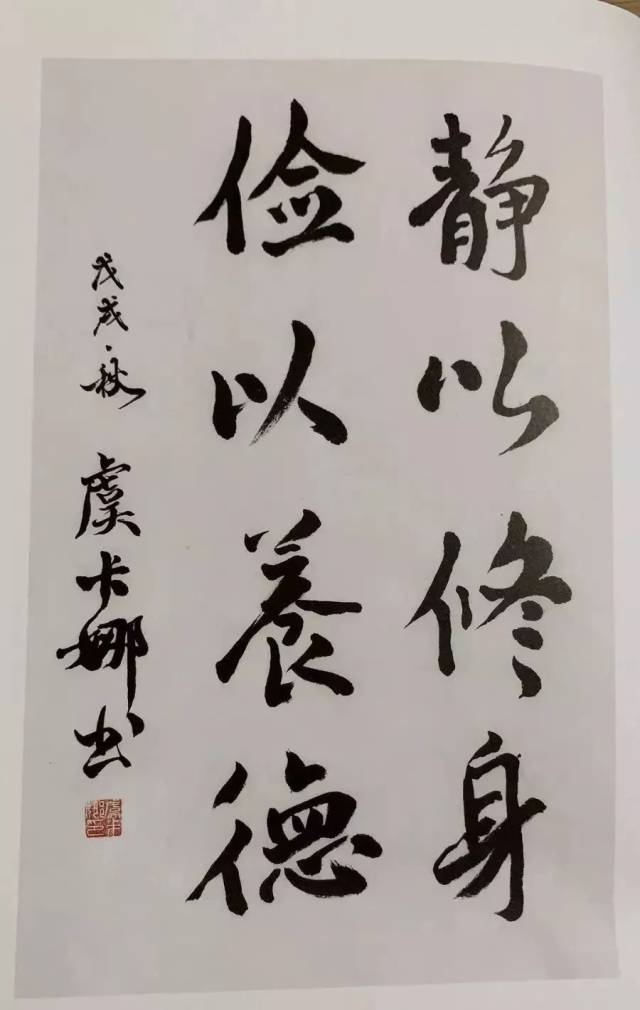 静以修身
儉以養德
戊戌·秋 虞卡娜书